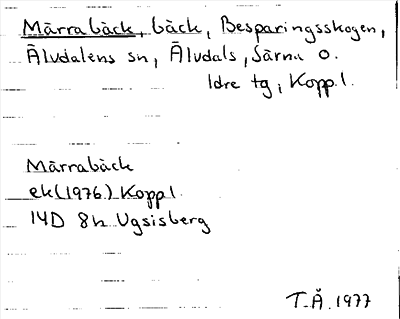 Märrabäck, bäck, Besparingsskogen,
Älvdalens sn, Älvdals, Särna o.
Idre tg, Kopp.l.
Märrabäck
ek (1976) Kopp l.
14D 8h Ugsisberg
T.Å. 1977